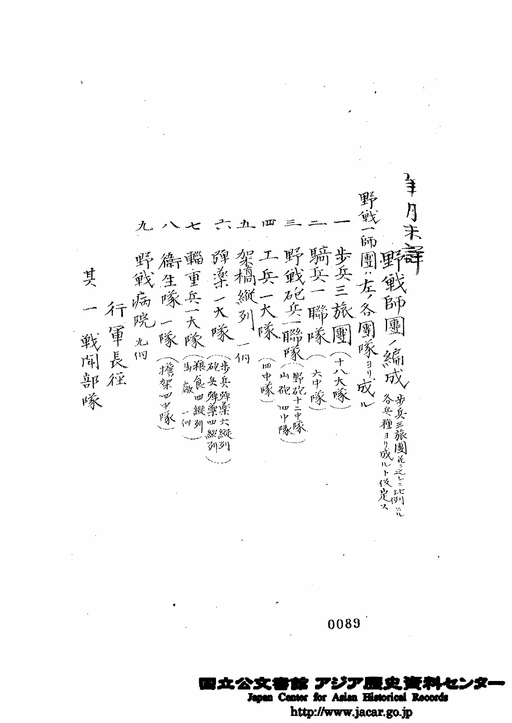 年月未詳
野戰師團ノ編成 歩兵三旅團並ニ之レニ比例スル
各兵種ヨリ成ルト假定ス
野戰一師團ハ左ノ各團隊ヨリ成ル
一 歩兵三旅團(十八大隊)
二 騎兵一聯隊(六中隊)
三 野戰砲兵一聯隊(野砲十二中隊
山砲四中隊)
四 工兵一大隊(四中隊)
五 架橋縱列一個
六 彈藥一大隊(歩兵彈藥六縱列
砲兵彈藥四縱列)
七 輜重兵一大隊(糧食四縱列
馬廠一個)
八 衞生隊一隊(擔架四中隊)
九 野戰病院九個
行軍長徑
其一戰鬪部隊
0089
国立公文書館 アジア歴史資料センター
Japan Center for Asian Historical Records
http://www.jacar.go.jp